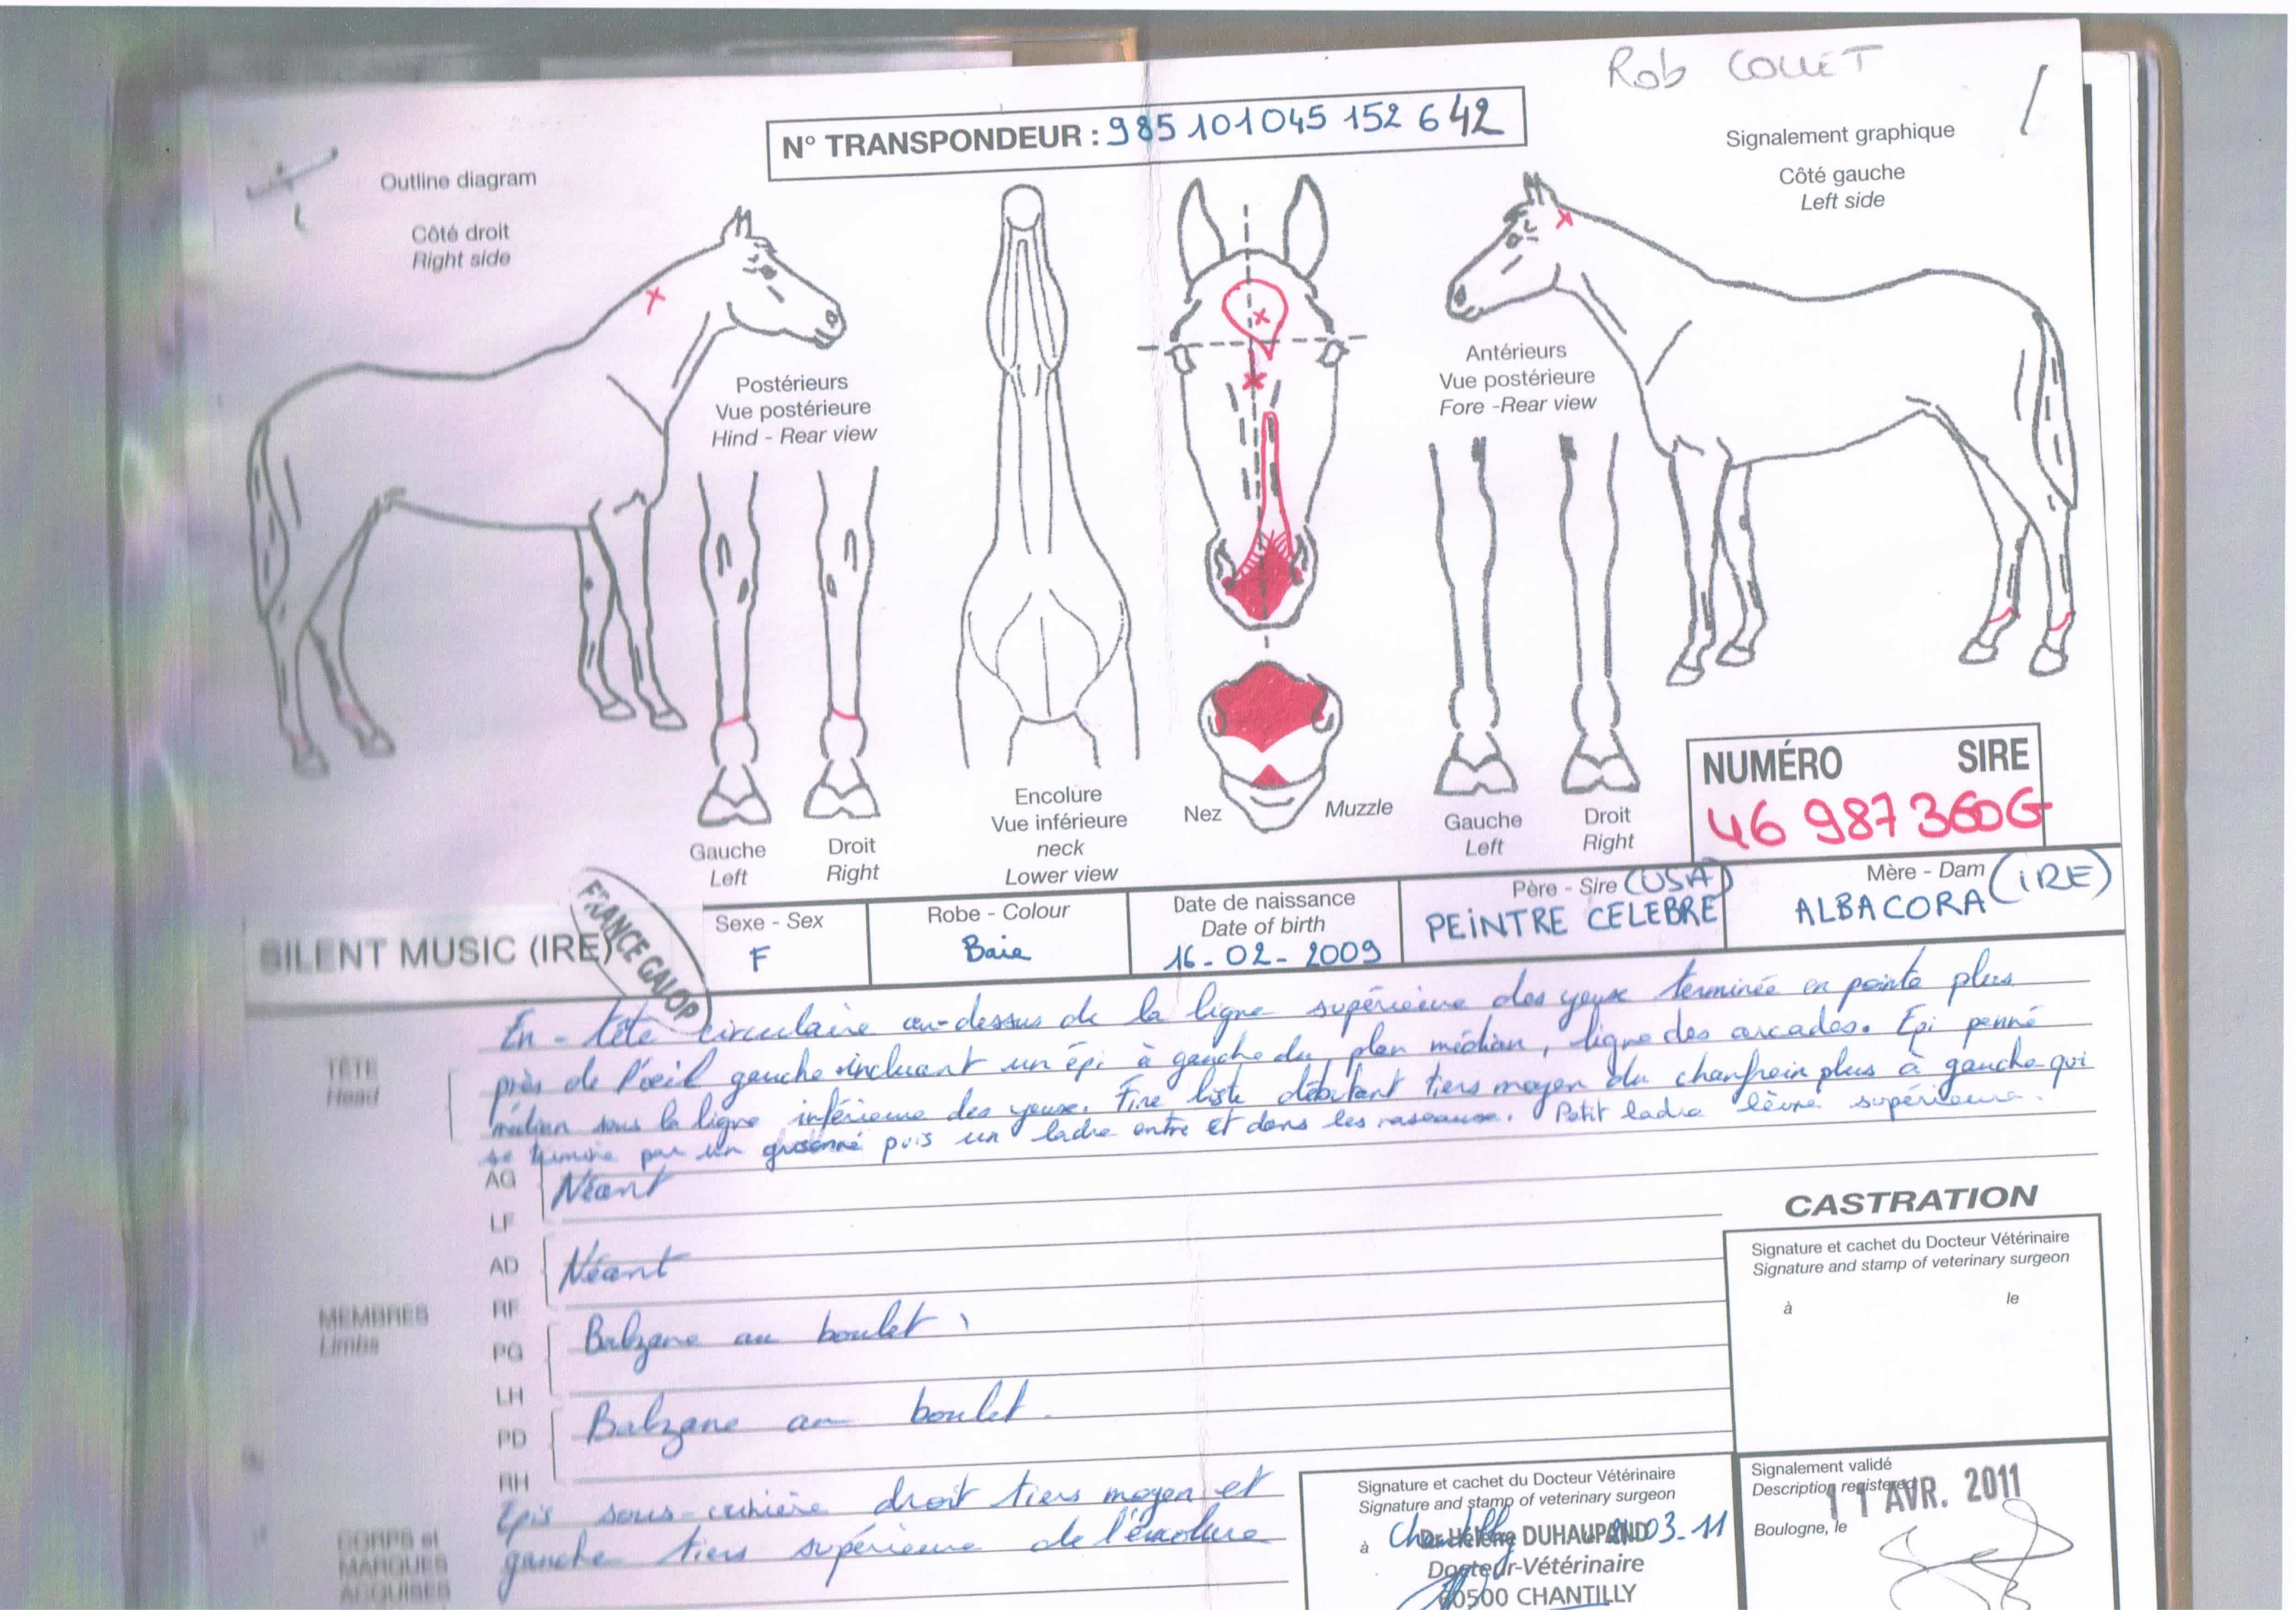 Rob COLLET
N° TRANSPONDEUR : 985 101045 152 642
Outline diagram
Côté droit
Right side
Signalement graphique
Côté gauche
Left side
Postérieurs
Vue postérieure
Hind - Rear view
Antérieurs
Vue postérieure
Fore -Rear view
Gauche
Left
Droit
Right
Encolure
Vue inférieure
neck
Lower view
Nez
Muzzle
Gauche
Left
Droit
Right
NUMÉRO SIRE
46 987 360G
SILENT MUSIC (IRE)
FRANCE GALOP
Sexe - Sex
F
Robe - Colour
Baie
Date de naissance
Date of birth
16-02-2009
Père - Sire (USA)
PEINTRE CELEBRE
Mère - Dam (IRE)
ALBACORA
TÊTE
Head
En-tête circulaire au-dessus de la ligne supérieure des yeux terminée en pointe plus
près de l'oeil gauche incluant un épi à gauche du plan médian, ligne des arcades. Epi penné
médian sous la ligne inférieure des yeux. Fine liste débutant tiers moyen du chanfrein plus à gauche qui
se termine par un grisonné puis un ladre entre et dans les naseaux. Petit ladre lèvre supérieure.
MEMBRES
Limbs
AG
LF
Néant
AD
RF
Néant
PG
LH
Balzane au boulet
PD
RH
Balzane au boulet.
CORPS et
MARQUES
ACQUISES
Epis sous-crinière droit tiers moyen et
gauche tiers supérieure de l'encolure
CASTRATION
Signature et cachet du Docteur Vétérinaire
Signature and stamp of veterinary surgeon
à le
Signature et cachet du Docteur Vétérinaire
Signature and stamp of veterinary surgeon
à Chantilly 03-11
Dr Hélène DUHAUPAND
Docteur-Vétérinaire
60500 CHANTILLY
Signalement validé
Description registered
11 AVR. 2011
Boulogne, le